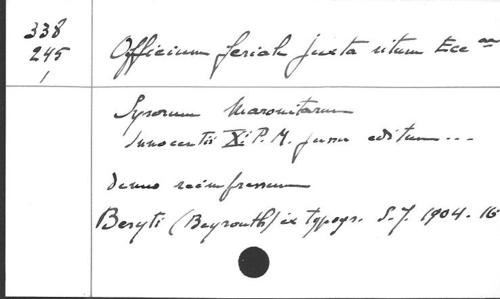 338
245
1
Officium feriale juxta ritum Ecc ae
Syrorum Maronitarum
Innocentii XI P. M. jussu editum ...
Denuo reimpressum
Beryti (Beyrouth) ex typogr. S. J. 1904. 16